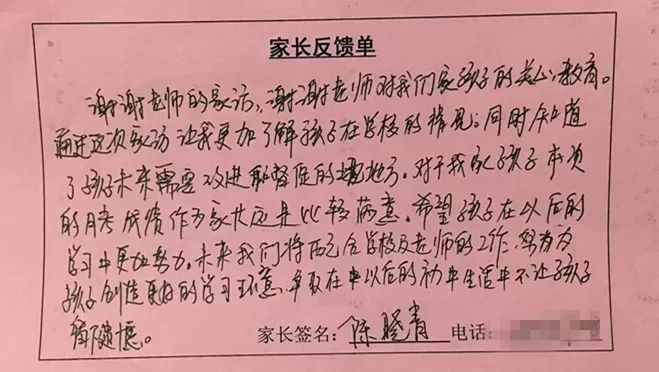 家长反馈单
谢谢老师的家访，谢谢老师对我们家孩子的关心、教育。
通过这次家访让我更加了解孩子在学校的情况；同时知道
了孩子未来需要改进和督促的地方。对于我家孩子本次
的月考成绩作为家长还是比较满意。希望孩子在以后的
学习中更加努力。未来我们将配合学校及老师的工作，努力为
孩子创造更好的学习环境，争取在以后的初中生活中不让孩子
留下遗憾。
家长签名：陈晓青 电话：